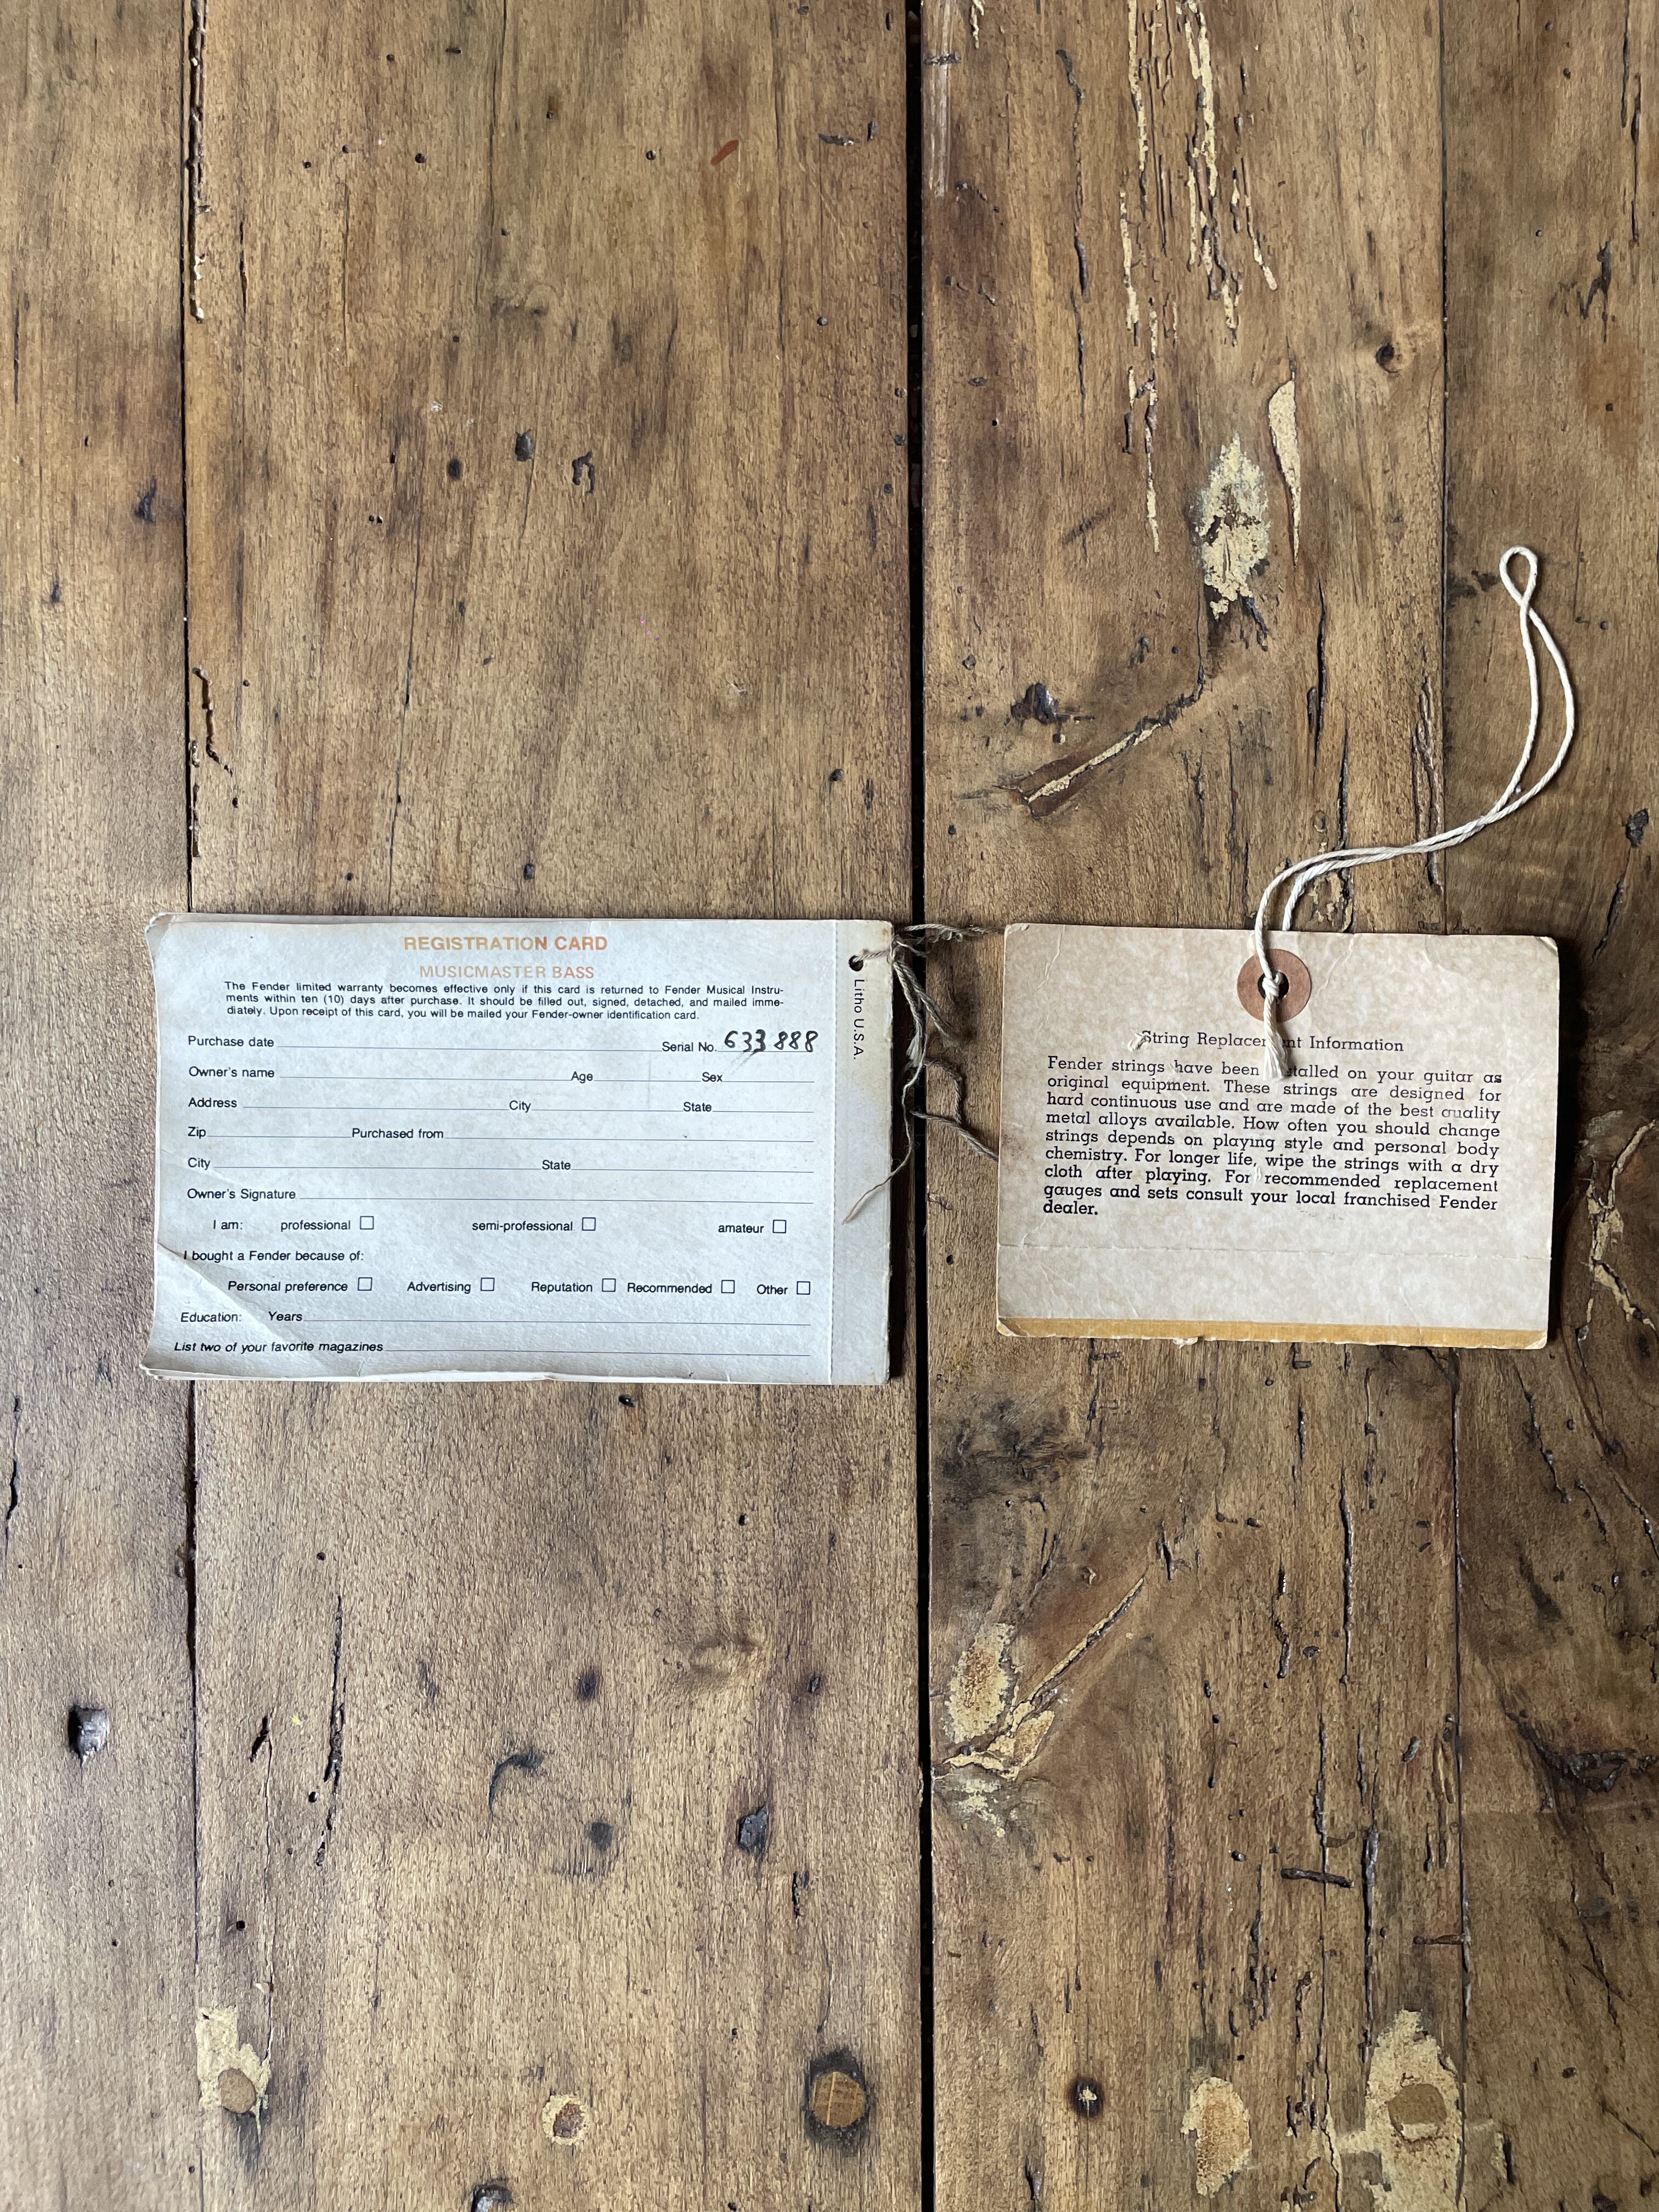 REGISTRATION CARD
MUSICMASTER BASS
The Fender limited warranty becomes effective only if this card is returned to Fender Musical Instru-
ments within ten (10) days after purchase. It should be filled out, signed, detached, and mailed imme-
diately. Upon receipt of this card, you will be mailed your Fender-owner identification card.
Purchase date Serial No. 633888
Owner's name Age Sex
Address City State
Zip Purchased from
City State
Owner's Signature
I am: professional semi-professional amateur
I bought a Fender because of:
Personal preference Advertising Reputation Recommended Other
Education: Years
List two of your favorite magazines
Litho U.S.A.
String Replacem nt Information
Fender strings have been stalled on your guitar as
original equipment. These strings are designed for
hard continuous use and are made of the best quality
metal alloys available. How often you should change
strings depends on playing style and personal body
chemistry. For longer life, wipe the strings with a dry
cloth after playing. For recommended replacement
gauges and sets consult your local franchised Fender
dealer.